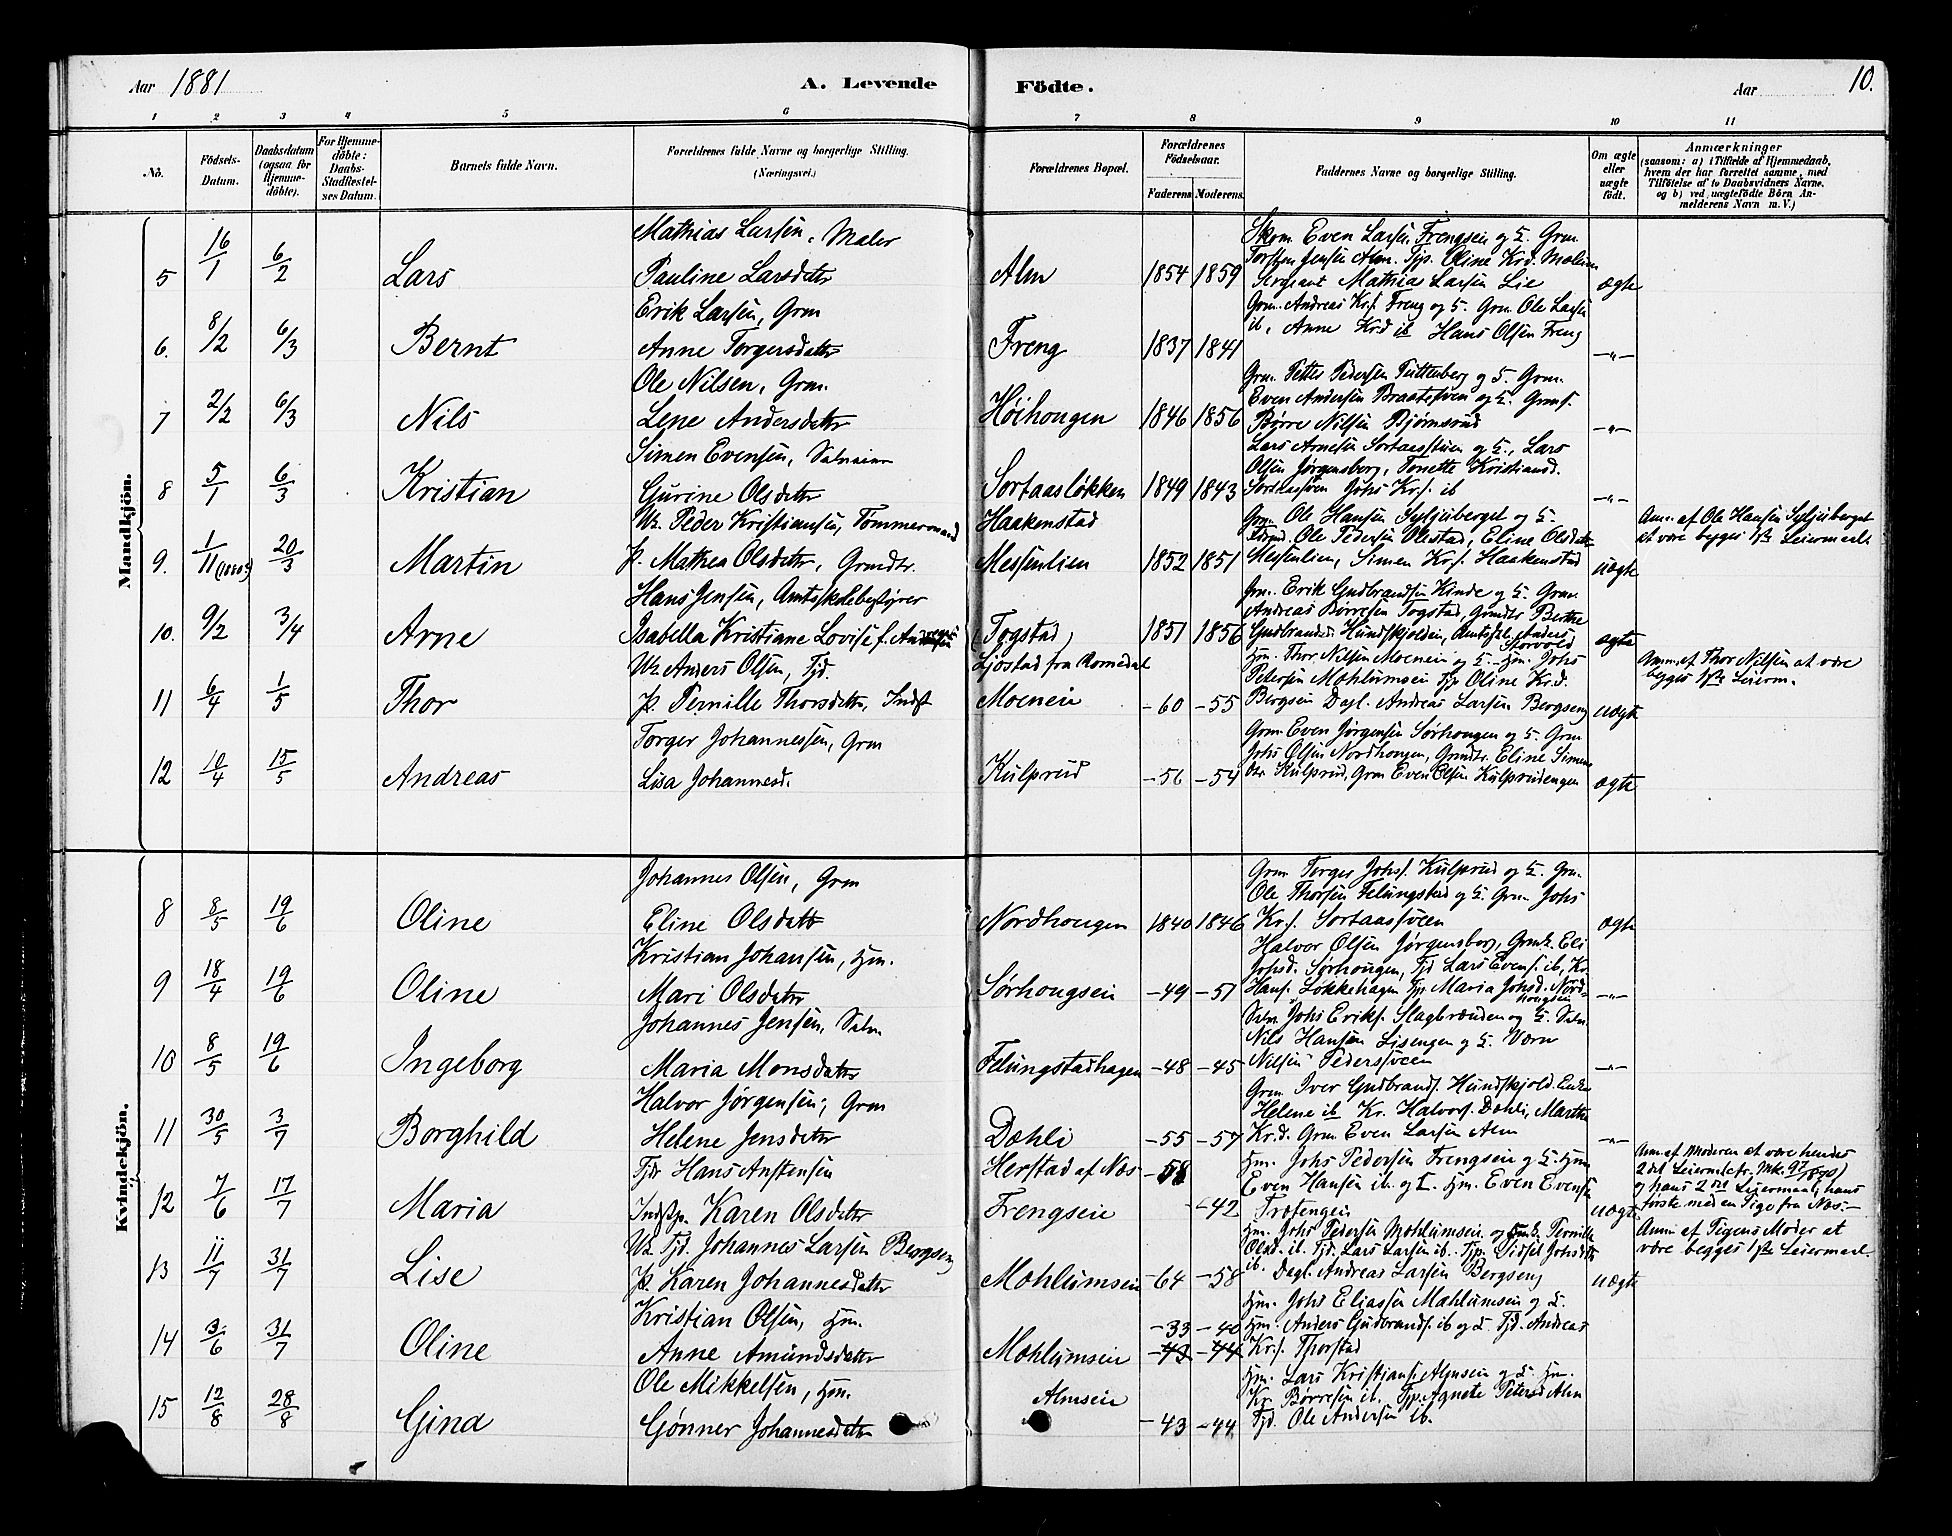 Aar 1881
A. Levende
Födte.
Aar
10.
1 2 3 4 5 6 7 8 9 10 11
No.
Födsels-Datum.
Daabsdatum (ogsaa for Hjemmedöbte).
For Hjemmedöbte: Daabs-Stadfæstelses Datum.
Barnets fulde Navn.
Forældrenes fulde Navne og borgerlige Stilling. (Næringsvei.)
Forældrenes Bopæl.
Forældrenes Födselsaar.
Faderens. Moderens.
Faddernes Navne og borgerlige Stilling.
Om ægte eller uægte födt.
Anmærkninger
(saasom: a) i Tilfælde af Hjemmedaab, hvem der har forrettet samme, med Tilföielse af to Daabsvidners Navne, og b) ved uægtefödte Börn Anmelderens Navn m. V.)
Mandkjön.
Mathias Larsen, Maler
Skom. Even Larsen Frengseie og H. Grm.
Torsten Jensen Alm. Pige Oline Krd. Mælum
5 16/1 6/2 Lars Pauline Larsdatter Alm 1854 1859 Sergeant Mathias Larsen Lie ægte
Erik Larsen, Grm
Grm. Andreas Krs. Freng og H. Grm Ole Larsen
6. 8/2 6/3 Bernt Anne Torgersdatter Freng 1837 1841 ib, Anne Krd ib Hans Olsen Freng -"-
Ole Nilsen, Grm.
Grm. Petter Pedersen Puttenberg og H. Grm.
7 2/2 6/3 Nils Lene Andersdatter Höihougen 1846 1856 Even Andersen Braatesveen og H. Grms.
Börre Nilsen Björnsrud -"-
Simen Evensen, Selveier
Lars Arnesen Sortaasstuen og H., Lars
Olsen Jörgensberg, Tonette Kristiansd.
8 5/1 6/3 Kristian Gurine Olsdatter Sortaaslökken 1849 1843 Sortaasveen Johs Krs. ib -"-
Uk. Peder Kristiansen, Tömmermand Haakenstad
Grm. Ole Hansen Syljuberget og H.
Anm. af Ole Hansen Syljuberget
at være begges 1ste Leiermaal.
Ole Pedersen Olestad, Eline Olsdatter
9. 1/11 (1880) 20/3 Martin P. Mathea Olsdatter, Grmdtr. Messenlien 1852 1851 Messenlien, Simen Krs. Haakenstad uægte
Hans Jensen, Amtsskolebestyrer
Grm. Erik Gudbrandsen Kinde og H. Grm.
Andreas Börresen Togstad, Grmdtr Berthe
10. 9/2 3/4 Arne Isabella Kristiane Lovise f. Andersen (Togstad) 1851 1856 Gudbrandsd. Hundskjolden, Storvold ægte
Uk. Anders Olsen, Tjd. Ljostad fra Romedal
Hm. Thor Nilsen Moeneie og H. Hm. Johs
Petersen Mohlumseie Tjp Oline Kr.d.
Anm. af Thor Nilsen at være
begges 1ste Leierm.
11 6/4 1/5 Thor P. Pernille Thorsdatter, Indst Moeneie -60 -55 Bergseie Dagl. Andreas Larsen Bergseng uægte
Torger Johannessen, Grm
Grm Even Jörgensen Sörhougen og H. Grm
Johs Olsen Nordhougen, Grmdtr. Eline Simens
12 10/4 15/5 Andreas Lisa Johannesd. Kulprud -56 -54 dtr Kulprud, Grm Even Olsen Kulprudengen ægte
Kvindekjön.
Johannes Olsen, Grm
Grm Torger Johs. Kulprud og H. Grm.
Ole Thorsen Felungstad og H. Grm Johs
8 8/5 19/6 Oline Eline Olsdatter Nordhougen 1840 1846 Kr.s. Sortaasveen ægte
Kristian Johansen, Hm.
Halvor Olsen Jörgensberg, Grmk. Eli
Johsd. Sörhougen, Tjd Lars Evens. ib, Kr.
9 18/4 19/6 Oline Mari Olsdatter Sörhougseie -49 -51 Hans. Lökkehagen Tjp Maria Johsd. Nord-
hougseie -"-
Johannes Jensen, Selv.
Selv. Johs Eriks. Slagbrænden og H. Selv.
Nils Hansen Lisengen og H. Værn
10 8/5 19/6 Ingeborg Maria Monsdatter Felungstadhagen -48 -45 Nilsen Pedersveen -"-
Halvor Jörgensen, Grm
Grm Iver Gudbrands. Hundskjold. Enke
Helene ib Kr. Halvors. Dæhli, Marthe
11 30/5 3/7 Borghild Helene Jensdatter Dæhli -55 -57 Kr.d. Grm Even Larsen Alm -"-
Tjdr Hans Anstensen Herstad af Næs -58
Hm. Johs Pedersen Frengseie og H. Hm
Even Hansen ib. og H. Hm. Even Evensen
12 7/6 17/7 Maria Indst p. Karen Olsdatter Frengseie -42 uægte
Anm. af Moderen at være hendes
2det Leierml
og hans 2det Leiermaal, hans
förste med en Pige fra Næs.-
Uk Tjd. Johannes Larsen Bergseng
Hm. Johs Pedersen Mohlumseie og Pernille
Olsd. ib. Tjd. Lars Larsen ib. Tjp. Sidsel Johsdtr
Anm af Pigens Moder at
være begges 1ste Leiermaal.
13 11/7 31/7 Lise P. Karen Johannesdatter Mohlumseie -64 -58 ib. Dagl. Andreas Larsen Bergseng uægte
Kristian Olsen, Hm.
Hm. Johs Eliassen Mahlumseie og H.
-33 -40 Hm. Anders Gudbrands. ib og H Tjd. Andreas
14 3/6 31/7 Oline Anne Amundsdatter Mohlumseie -43 -44 Krs. Thorstad
Ole Mikkelsen, Hm.
Hm. Lars Kristians. Almseie og H. Hm.
Almseie Kr. Börresen ib. Tjp. Agnete Petersd Alm
15 12/8 28/8 Gina Gönner Johannesdatter -43 -44 Tjd. Ole Andersen ib.